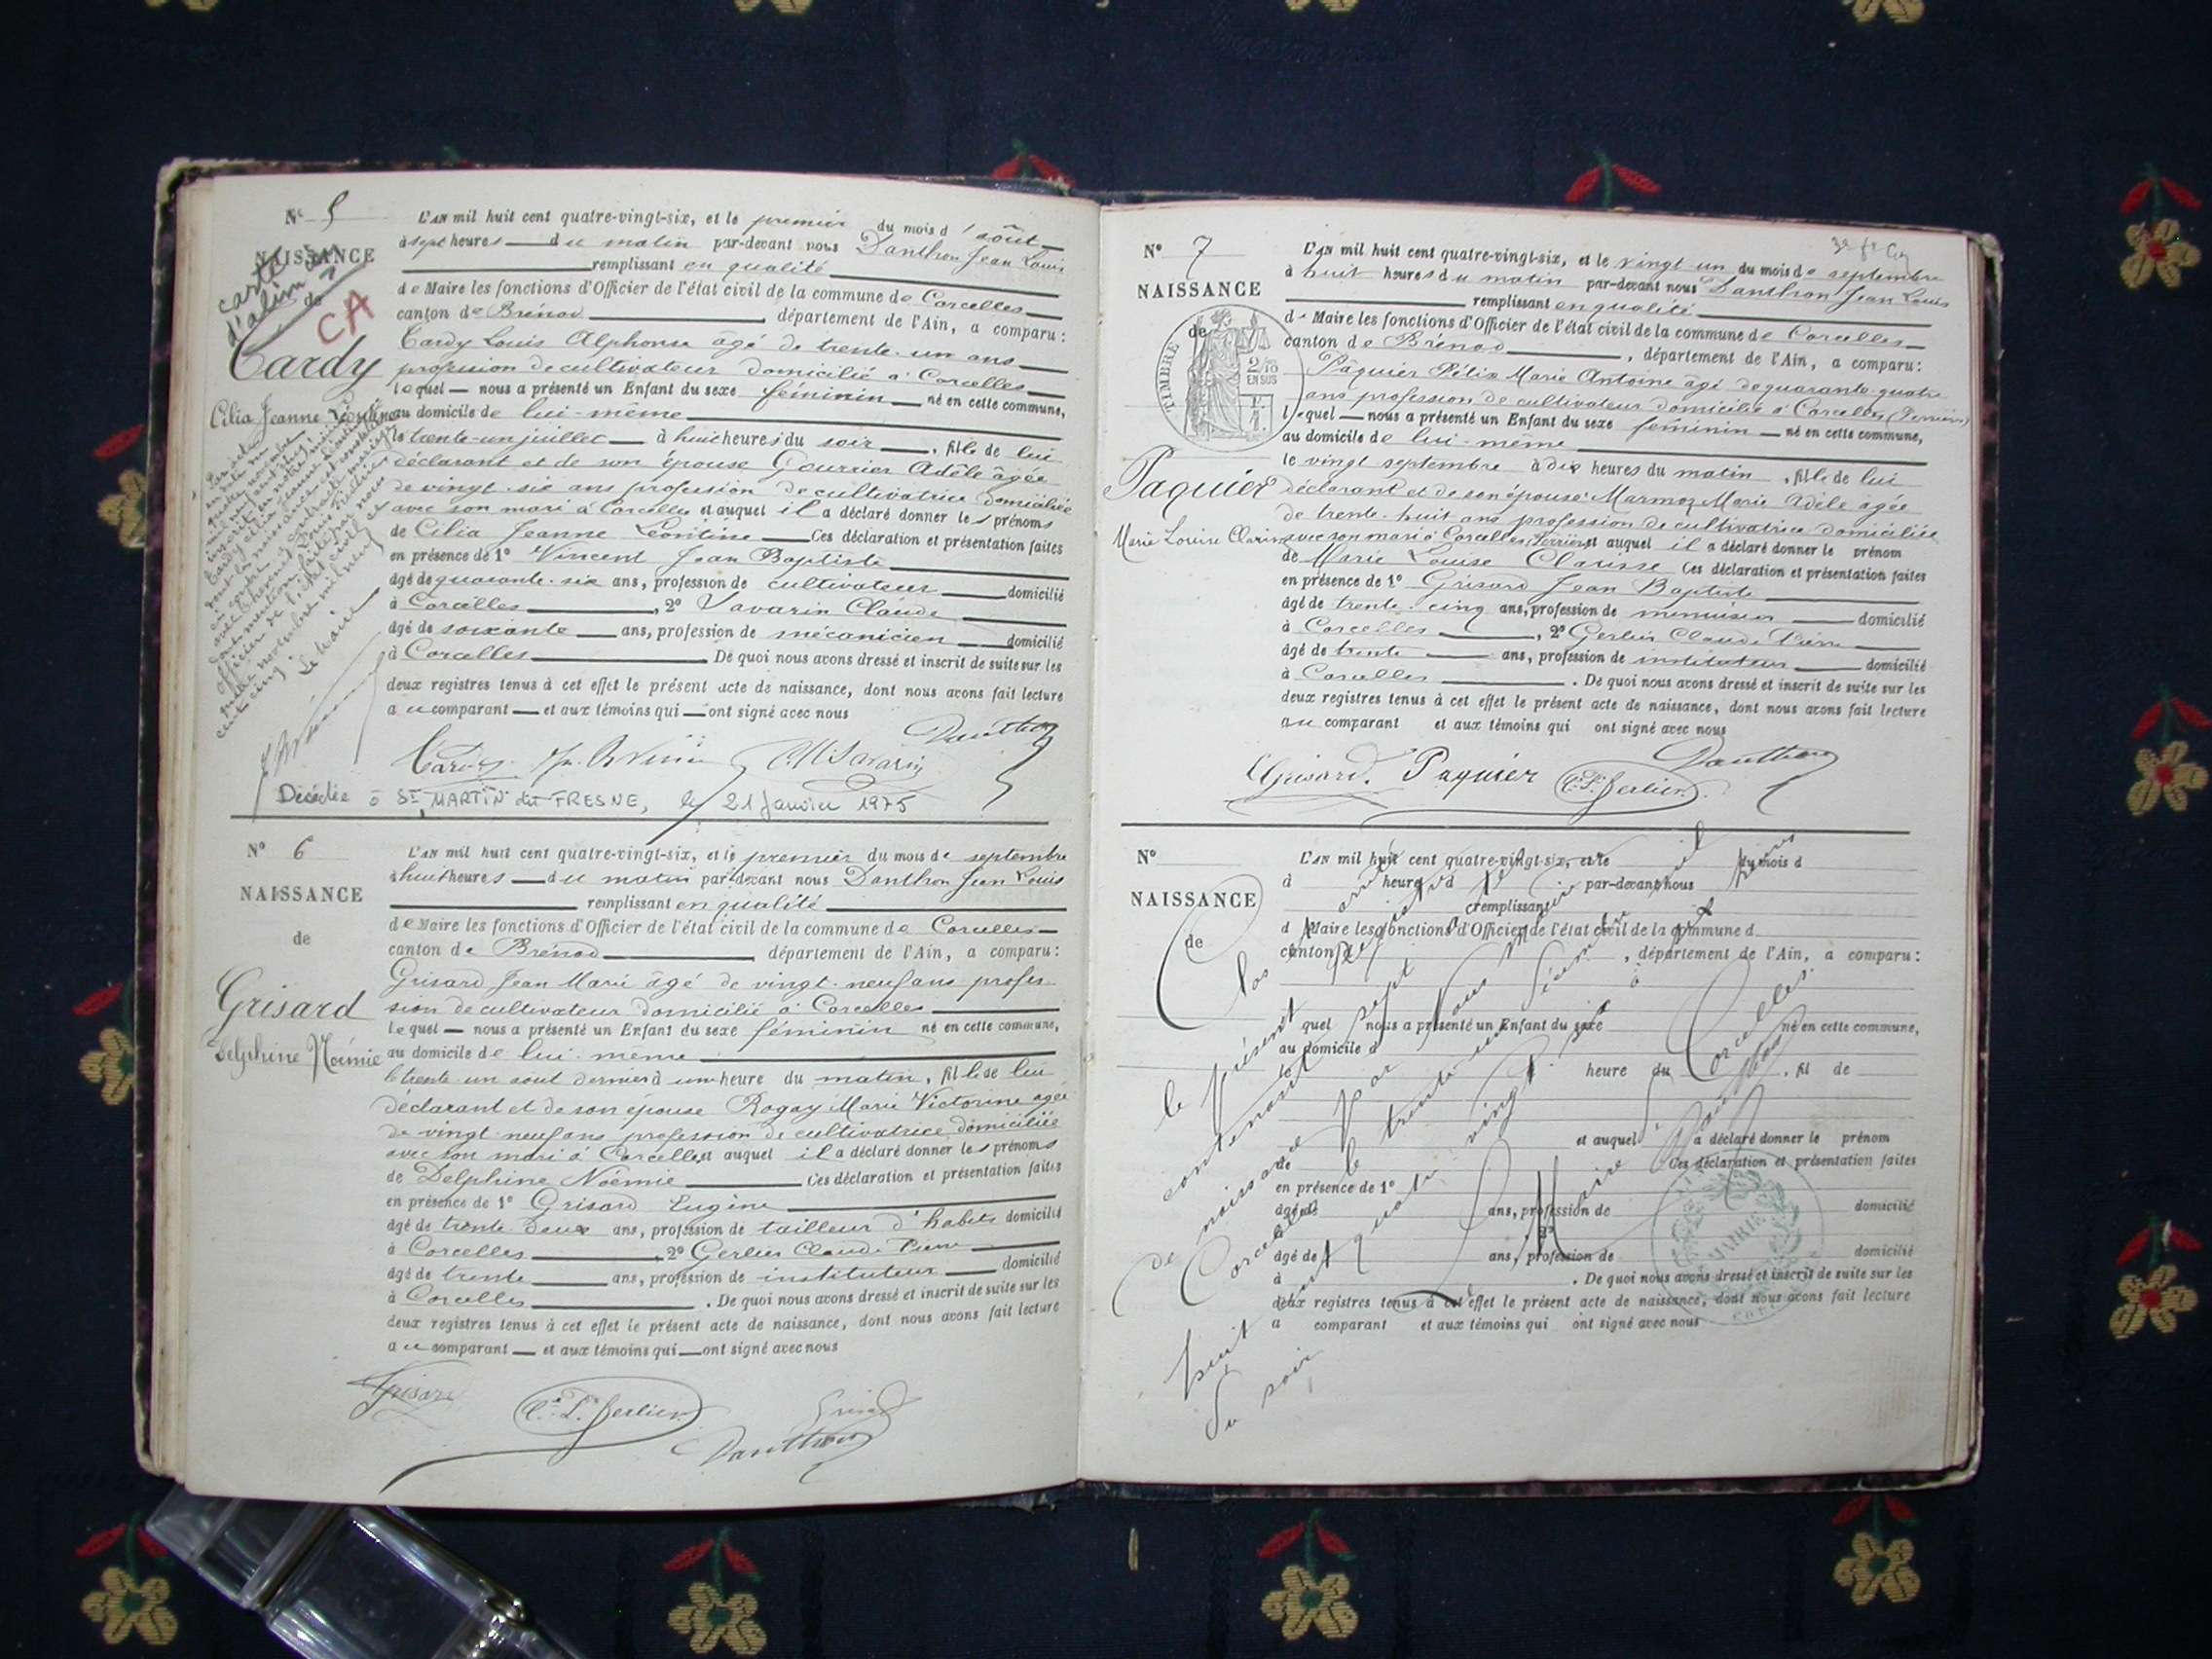 N° 5
NAISSANCE
de
carte
d'alim
CA
Cardy
Cilia Jeanne Léontine
L'AN mil huit cent quatre-vingt-six, et le premier du mois d'août
à sept heures du matin par-devant nous Danthon Jean Louis
remplissant en qualité
de Maire les fonctions d'Officier de l'état civil de la commune de Corcelles
canton de Brénod département de l'Ain, a comparu:
Cardy Louis Alphonse âgé de trente-un ans
profession de cultivateur domicilié à Corcelles
lequel nous a présenté un Enfant du sexe féminin né en cette commune,
au domicile de lui-même
le trente-un juillet à huit heures du soir, fille de lui
déclarant et de son épouse Adèle âgée
de vingt-six ans profession de cultivatrice domiciliée
avec son mari à Corcelles et auquel il a déclaré donner les prénoms
de Cilia Jeanne Léontine Ces déclaration et présentation faites
en présence de 1° Vincent Jean Baptiste
âgé de quarante-six ans, profession de cultivateur domicilié
à Corcelles, 2° Savarin Claude
âgé de soixante ans, profession de mécanicien domicilié
à Corcelles De quoi nous avons dressé et inscrit de suite sur les
deux registres tenus à cet effet le présent acte de naissance, dont nous avons fait lecture
au comparant et aux témoins qui ont signé avec nous
Le Maire
Danthon
Cardy
Savarin
Décédée à St MARTIN du FRESNE, le 21 Janvier 1975
N° 6
NAISSANCE
de
Grisard
Delphine Noémie
L'AN mil huit cent quatre-vingt-six, et le premier du mois de septembre
à huit heures du matin par-devant nous Danthon Jean Louis
remplissant en qualité
de Maire les fonctions d'Officier de l'état civil de la commune de Corcelles
canton de Brénod département de l'Ain, a comparu:
Grisard Jean Marie âgé de vingt-neuf ans profes-
sion de cultivateur domicilié à Corcelles
lequel nous a présenté un Enfant du sexe féminin né en cette commune,
au domicile de lui-même
le trente-un août dernier à une heure du matin, fille de lui
déclarant et de son épouse Rogay Marie Victorine âgée
de vingt-neuf ans profession de cultivatrice domiciliée
avec son mari à Corcelles et auquel il a déclaré donner les prénoms
de Delphine Noémie Ces déclaration et présentation faites
en présence de 1° Grisard Eugène
âgé de trente-deux ans, profession de tailleur d'habits domicilié
à Corcelles, 2° Gerlier Claude Pierre
âgé de trente ans, profession de instituteur domicilié
à Corcelles. De quoi nous avons dressé et inscrit de suite sur les
deux registres tenus à cet effet le présent acte de naissance, dont nous avons fait lecture
au comparant et aux témoins qui ont signé avec nous
Grisard
C. P. Gerlier
Grisard
Danthon
N° 7
NAISSANCE
de
TIMBRE
2/10
EN SUS
Paquier
Marie Louise Clarisse
L'AN mil huit cent quatre-vingt-six, et le vingt-un du mois de septembre
à huit heures du matin par-devant nous Danthon Jean Louis
remplissant en qualité
de Maire les fonctions d'Officier de l'état civil de la commune de Corcelles
canton de Brénod, département de l'Ain, a comparu:
Paquier Félix Marie Antoine âgé de quarante-quatre
ans profession de cultivateur domicilié à Corcelles
lequel nous a présenté un Enfant du sexe féminin né en cette commune,
au domicile de lui-même
le vingt septembre à dix heures du matin, fille de lui
déclarant et de son épouse Marmoz Marie Adèle âgée
de trente-huit ans profession de cultivatrice domiciliée
avec son mari à Corcelles et auquel il a déclaré donner le prénom
de Marie Louise Clarisse Ces déclaration et présentation faites
en présence de 1° Grisard Jean Baptiste
âgé de trente-cinq ans, profession de menuisier domicilié
à Corcelles, 2° Gerlier Claude Pierre
âgé de trente ans, profession de instituteur domicilié
à Corcelles. De quoi nous avons dressé et inscrit de suite sur les
deux registres tenus à cet effet le présent acte de naissance, dont nous avons fait lecture
au comparant et aux témoins qui ont signé avec nous
Grisard. Paquier C. P. Gerlier Danthon
N°
NAISSANCE
de
L'AN mil huit cent quatre-vingt-six, et le du mois d
à heure d par-devant nous
remplissant
d Maire les fonctions d'Officier de l'état civil de la commune d
canton d, département de l'Ain, a comparu:
quel nous a présenté un Enfant du sexe né en cette commune,
au domicile d
le heure du, fil de
et auquel a déclaré donner le prénom
de Ces déclaration et présentation faites
en présence de 1°
âgé de ans, profession de domicilié
2°
âgé de ans, profession de domicilié
à. De quoi nous avons dressé et inscrit de suite sur les
deux registres tenus à cet effet le présent acte de naissance, dont nous avons fait lecture
a comparant et aux témoins qui ont signé avec nous
Clos
le présent
contenant sept
de naissance Par Nous
Corcelles le trente-un
huit quatre vingt six
du soir
Le Maire
Danthon
MAIRIE